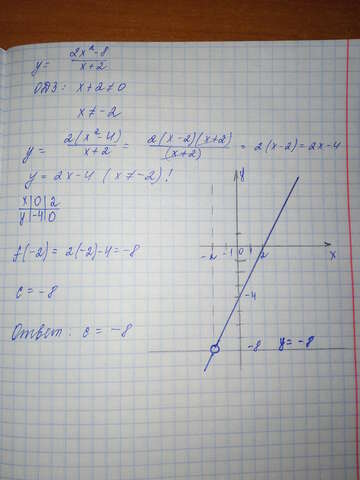 y = (2x²-8)/(x+2)
ОДЗ: x+2≠0
x≠-2
y = 2(x²-4)/(x+2) = 2(x-2)(x+2)/(x+2) = 2(x-2)=2x-4
y = 2x-4 (x≠-2)!
x|0|2
y|-4|0
f(-2) = 2(-2)-4=-8
c = -8
Ответ: c = -8
y
-2 -1 0 2
x
-4
-8 y=-8